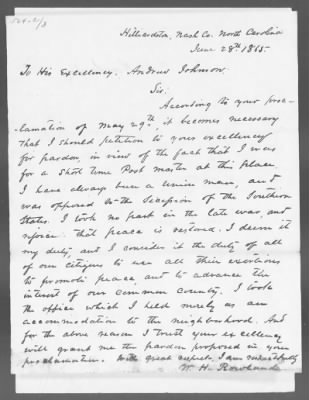 Hilliardston, Nash Co. North Carolina
June 28th 1865
To His Excellency. Andrew Johnson.
Sir.
According to your proc-
lamation of May 29th, it becomes necessary
that I should petition to your excellency
for pardon, in view of the fact that I was
for a short time Post master at this place
I have always been a Union man, and
was opposed to the Secession of the Southern
States. I took no part in the late war, and
rejoice that peace is restored. I deem it
my duty, and I consider it the duty of all
of our citizens to use all their exertions
to promote peace, and to advance the
interest of our common country. I took
the office which I held merely as an
accommodation to the neighborhood. And
for the above reason I trust your excellency
will grant me the pardon proposed in your
proclamation. With great respect, I am
W. H. Rowland